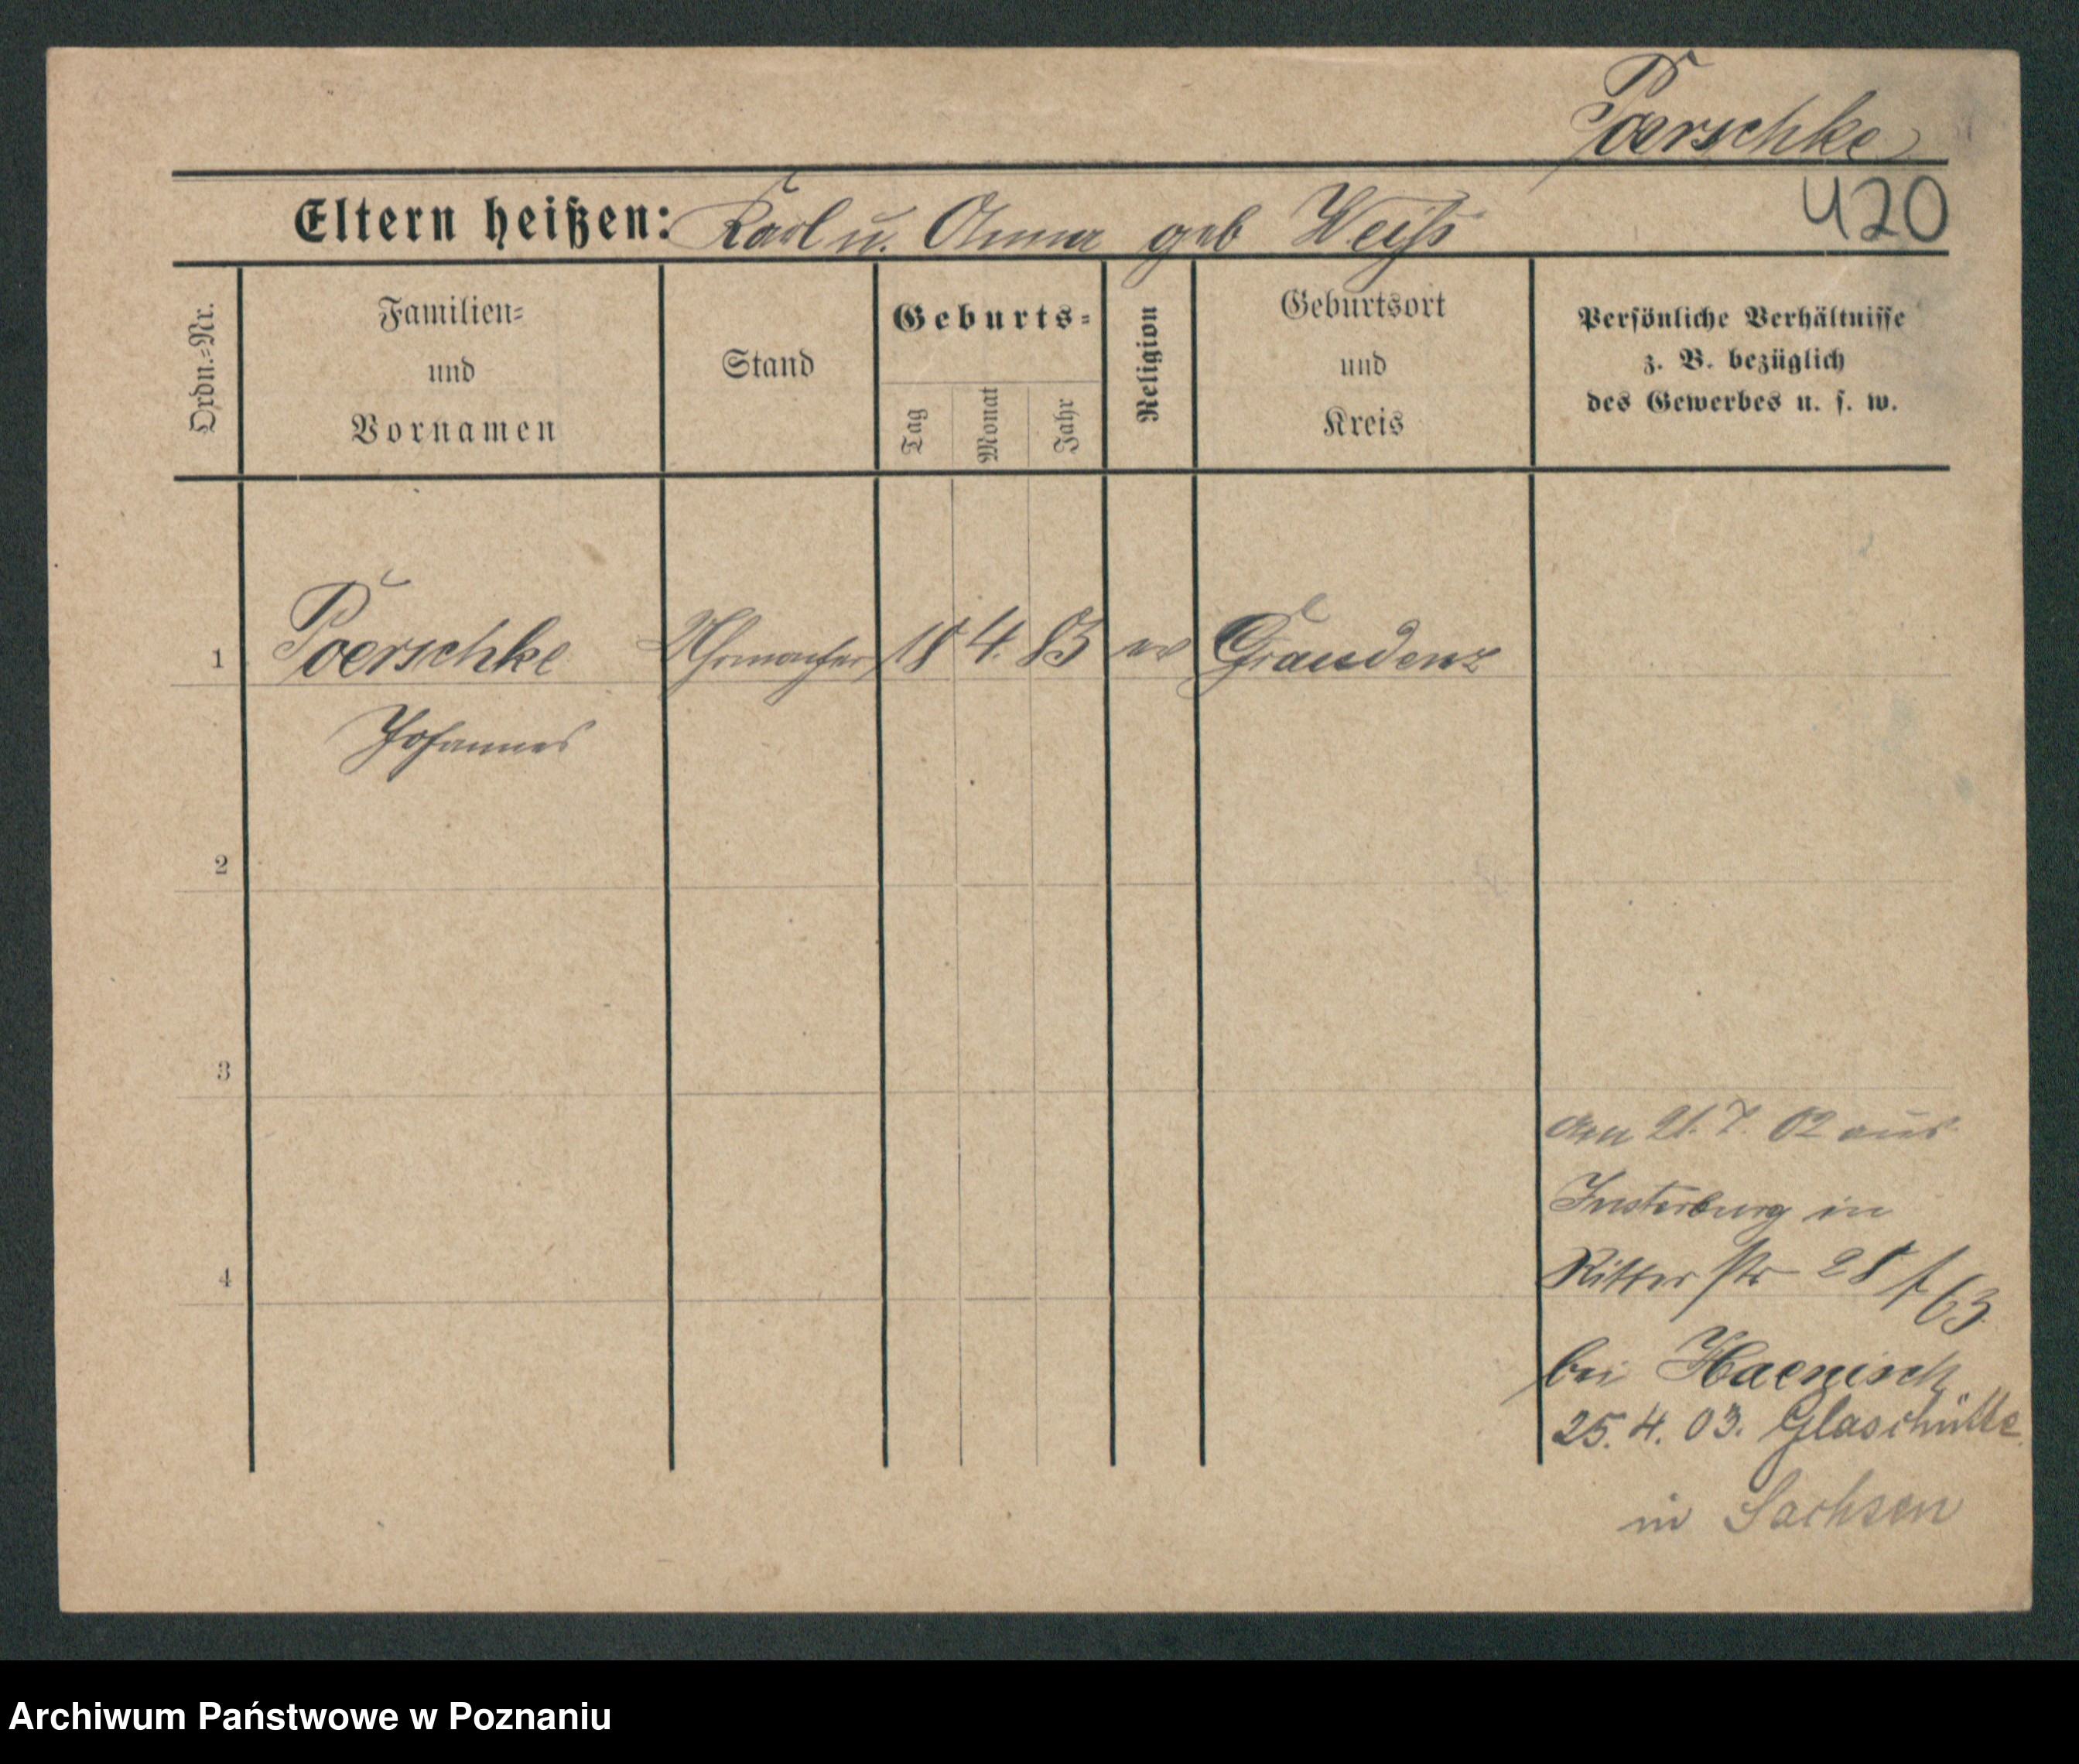 Poerschke
Eltern heißen: Karl u. Anna geb Weiss
420
Ordn.=Nr.
Familien=
und
Vornamen
Stand
Geburts=
Tag
Monat
Jahr
Religion
Geburtsort
und
Kreis
Persönliche Verhältnisse
z. B. bezüglich
des Gewerbes u. s. w.
1 Poerschke Uhrmacher 18 4. 83 ev Graudenz
Johannes
2
3
4
21. 7. 02 aus
Insterburg in
Ritter str 28
63
bei Haenisch
25. 4. 03. Glashütte
in Sachsen
Archiwum Państwowe w Poznaniu